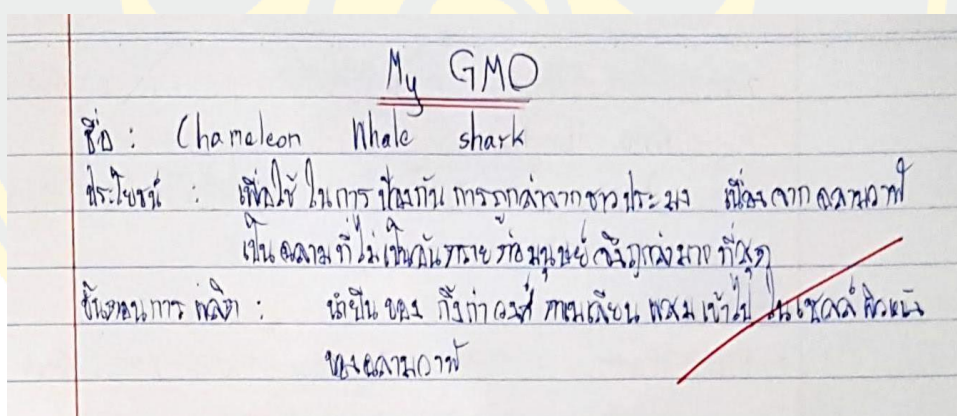 My GMO
ชื่อ : Chameleon Whale shark
ประโยชน์ : เพื่อใช้ในการป้องกันการถูกล่าจากชาวประมง เนื่องจากฉลามวาฬ
เป็นฉลามที่ไม่เป็นอันตรายต่อมนุษย์จึงถูกล่ามากที่สุด
ขั้นตอนการผลิต : นำยีนของ กิ้งก่าวงศ์ คาเมเลียน ผสมเข้าไปในเซลล์ผิวหนัง
ของฉลามวาฬ